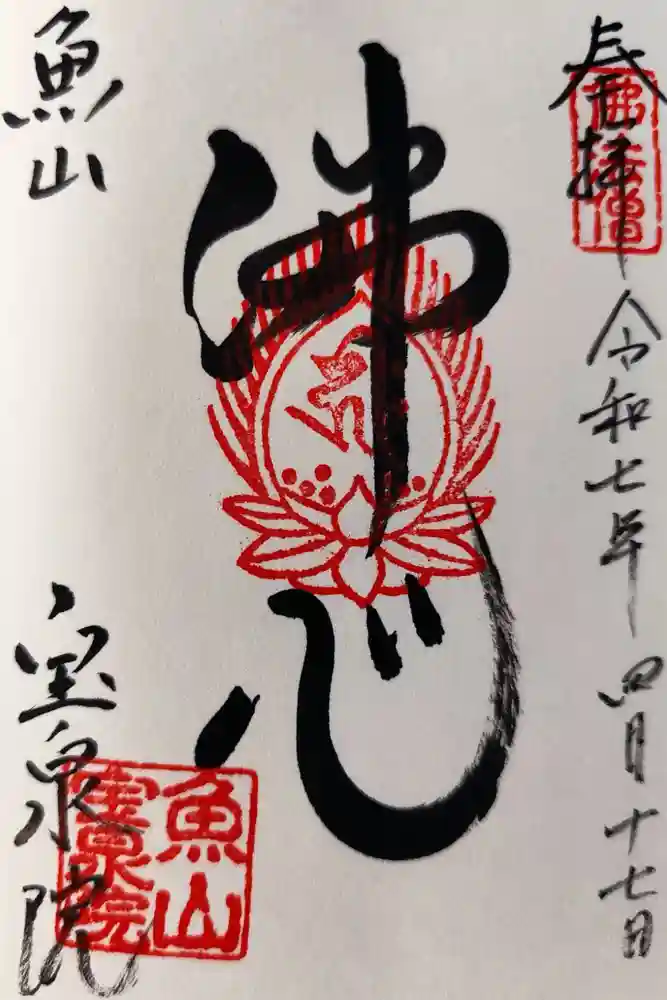 奉拝
佛法僧
令和七年四月十七日
佛心
魚山
宝泉院
魚山
寳泉院